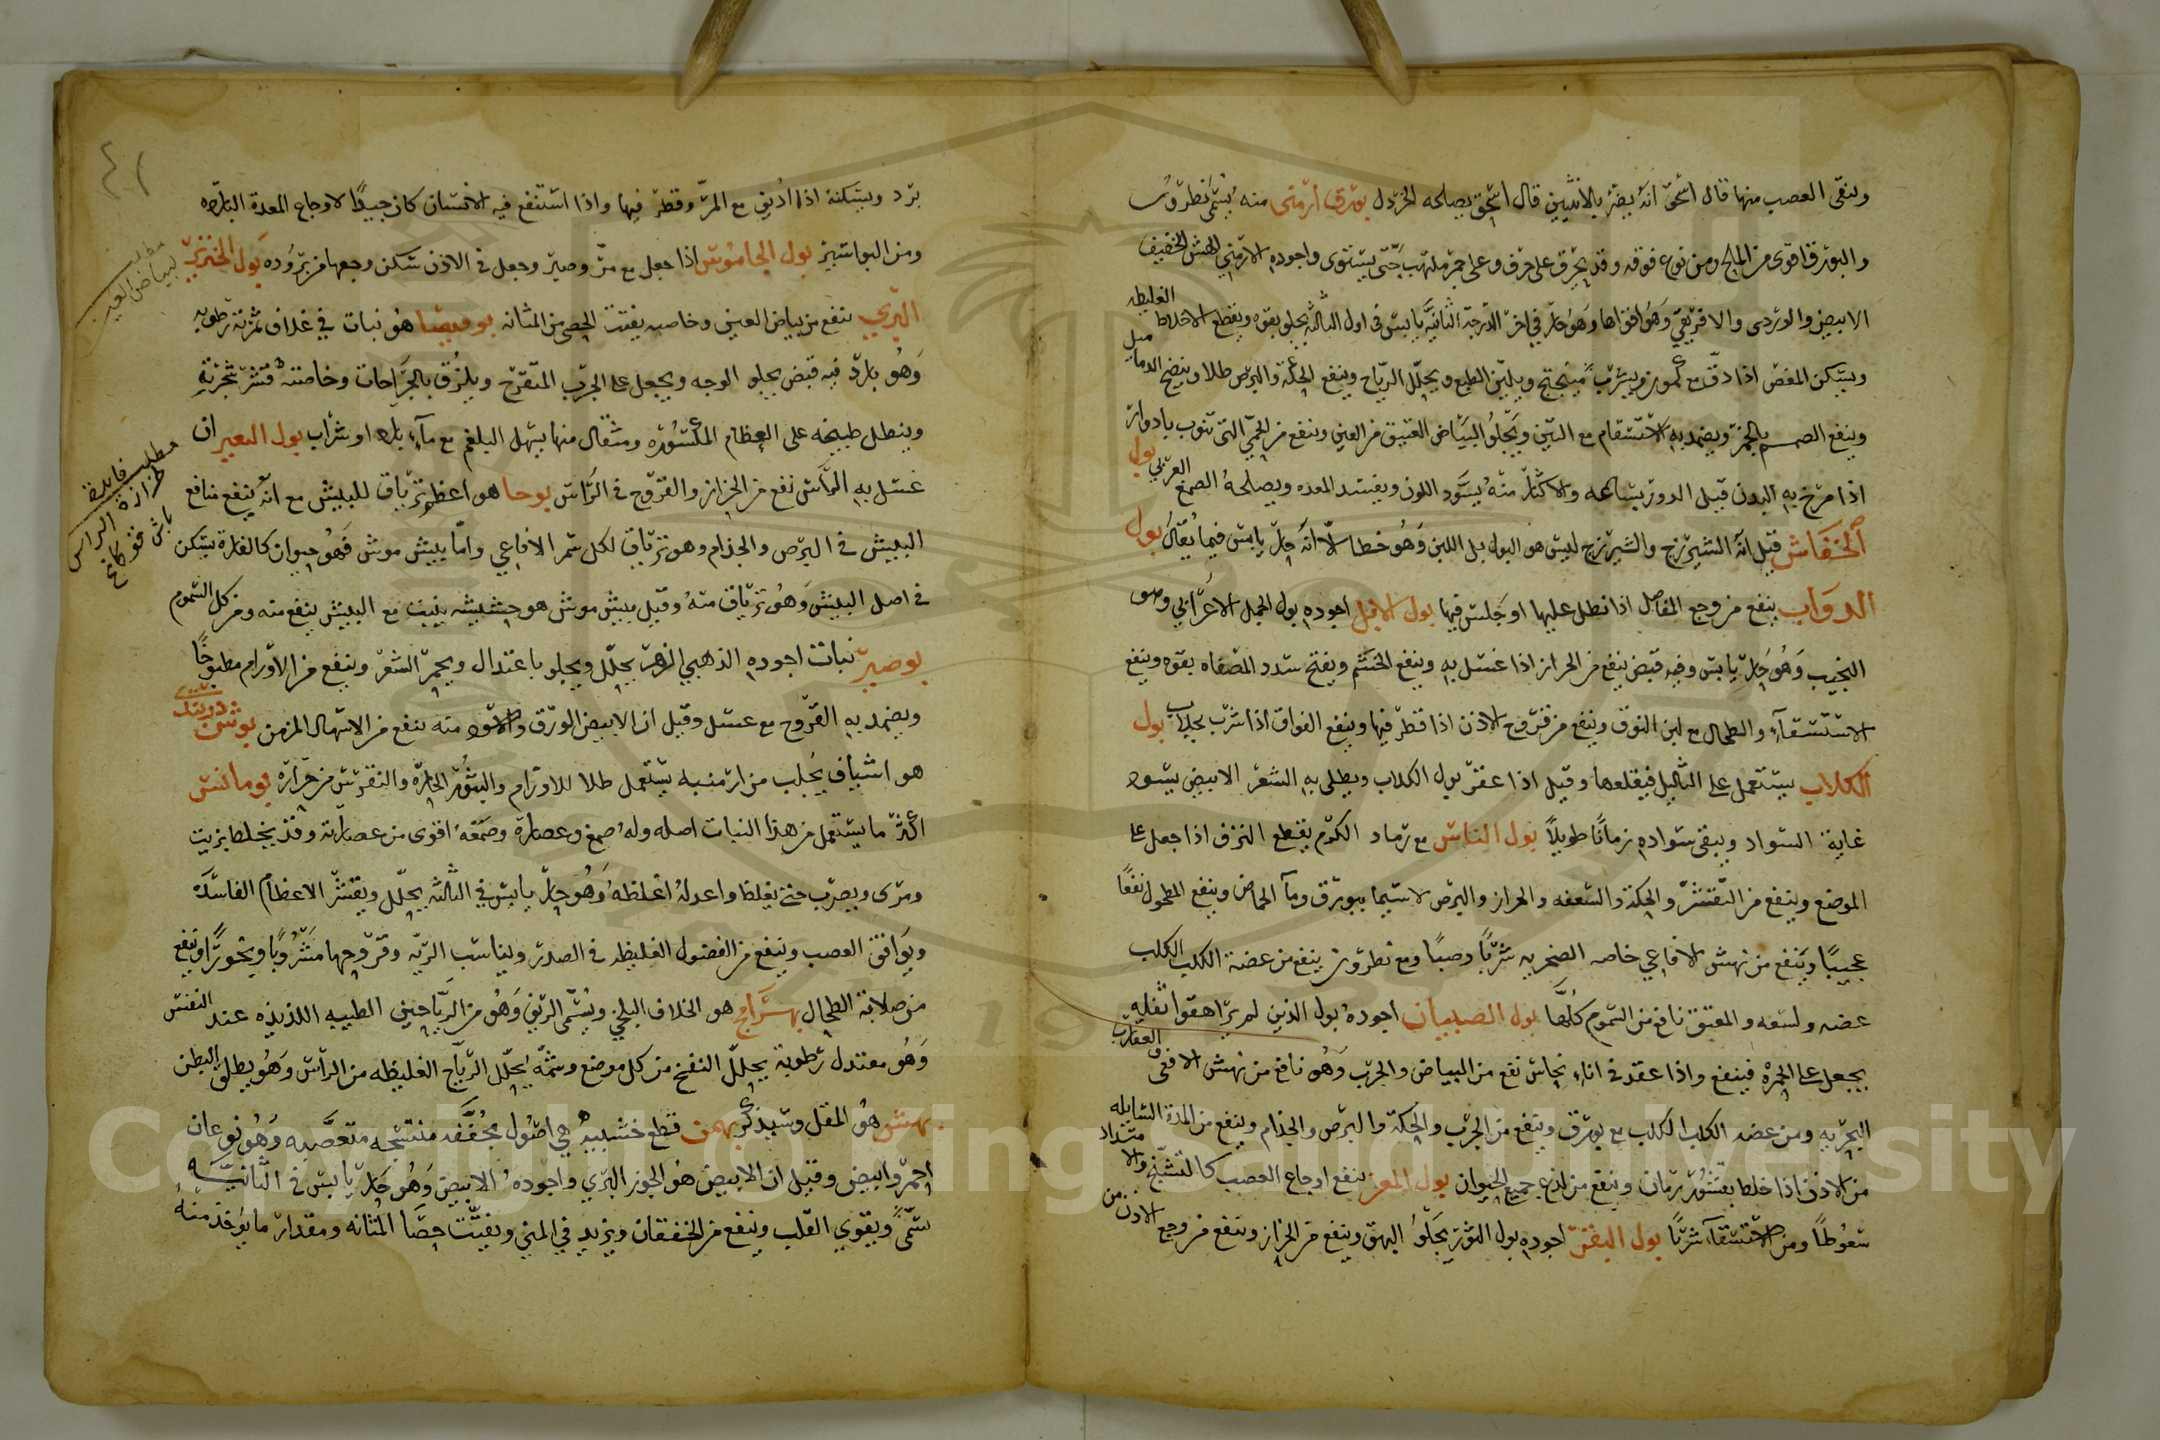 وينقى العصب منها قال اسحق انه يضر بالانثيين قال اسحق يصلحه الخردل بورق ارمنى منه يسمى نطرون
والبورق اقوى من الملح ومن نوع فوقه وقد يحرق على خزف وعلى جمر ملتهب حتى يستوى واجوده الارمني الهش الخفيف
الابيض والوردى والافريقي وهو اقواها وهو حار في اخر الدرجة الثانية يابس فى اول الثالثه يجلو بقوه ويقطع الاخلاط الغليظه
ويسكن المغص اذا دق مع كمون وشرب بمبنجتج ويلين الطبع ويحلل الرياح وينفع الحكة والبرص طلا وينضج الدماميل
وينفع الصمم بالخمر ويضمد به الاستسقاء مع التين ويجلو البياض العتيق من العين وينفع من الحمى التى تنوب بادوار
اذا مرخ به البدن قبل الدور بساعه والاكثار منه يسود اللون ويفسد المعده ويصلحه الصمغ العربي بول
الخفاش قيل انه الشيرزج والشيرزج ليس هو البول بل اللبن وهو خطا الا انه حار يابس فيما يقال بول
الدواب ينفع من وجع المفاصل اذا نطل عليها او جلس فيها بول الابل اجوده بول الجمل الاعرابي وهو
النجيب وهو حار يابس وفيه قبض ينفع من الحزاز اذا غسل به وينفع الخشم ويفتح سدد المصفاه بقوه وينفع
الاستسقاء والطحال مع لبن النوق وينفع من قروح الاذن اذا قطر فيها وينفع الفواق اذا شرب بجلاب بول
الكلاب يستعمل على الثاليل فيقلعها وقيل اذا عفن بول الكلاب ويطلى به الشعر الابيض يسود
غاية السواد ويبقى سواده زمانا طويلا بول الناس مع رماد الكرم يقطع النزف اذا جعل على
الموضع وينفع من التقشر والحكة والسعفه والحزاز والبرص لاسيما ببورق وماء الحماض وينفع المطحول نفعا
عجيبا وينفع من نهش الافاعي خاصه الصخريه شربا وصبا ومع نطرون ينفع من عضة الكلب الكلب
عضه ولسعه والمعتق نافع من السموم كلها بول الصبيان اجوده بول الذين لم يراهقوا ثفله
يجعل على الحمرة فينفع واذا عقد فى اناء نحاس نفع من البياض والجرب وهو نافع من نهش الافعى والعقارب
البحريه ومن عضه الكلب الكلب مع بورق وينفع من الجرب والحكة والبرص والجذام وينفع من المدة السايله
من الاذن اذا خلط بقشور رمان وينفع من لذع جميع الحيوان بول المعز ينفع اوجاع العصب كالتشنج والامتداد
سعوطا ومن الاستسقاء شربا بول البقر اجوده بول الثور يجلو البهق وينفع من الحزاز وينفع من وجع الاذن من
٤١
برد ويسكنه اذا اذيف مع المر وقطر فيها واذا استنقع فيه الانسان كان جيدا لاوجاع المعدة البارده
ومن البواسير بول الجاموس اذا جعل مع مر وصبر وجعل فى الاذن سكن وجعها من بروده بول الخنزير
البري ينفع من بياض العين وخاصيه يفتت الحصى من المثانه بوقيصا هو نبات في غلاف ثمرته رطوبه
وهو بارد فيه قبض يجلو الوجه ويجعل على الجرب المتقرح ويلزق بالجراحات وخاصته قشر شجرته
وينطل طبيخه على العظام المكسوره ومثقال منها يسهل البلغم مع ماء بارد او شراب بول البعير ان
غسل به الرأس نفع من الحزاز والقروح فى الراس بوحا هو اعظم ترياق للبيش مع انه ينفع منافع
البيش فى البرص والجذام وهو ترياق لكل سم الافاعي واما بيش موش فهو حيوان كالفارة يسكن
فى اصل البيش وهو ترياق منه وقيل بيش موش هو حشيشه ينبت مع البيش ينفع منه ومن كل السموم
بوصير نبات اجوده الذهبي الزهر يحلل ويجلو باعتدال ويحمر الشعر وينفع من الاورام مطبوخا
ويضمد به القروح مع عسل وقيل ان الابيض الورق والاسود منه ينفع من الاسهال المزمن بوش دربندى
هو اشياف يجلب من ارمنيه يستعمل طلا للاورام والبثور الحاره والنقرس من حراره بومانس
اكثر ما يستعمل من هذا النبات اصله وله صمغ وعصارة وصمغه اقوى من عصارته وقد يخلط بزيت
ومرى ويضرب حتى يغلظ واعدله اغلظه وهو حار يابس في الثالثه يحلل ويقشر الاعظام الفاسدة
ويوافق العصب وينفع من الفضول الغليظه فى الصدر ويناسب الريه وقروحها مشروبا وبخورا وينفع
من صلابة الطحال بهرامج هو الخلاف البلخي ويسمى الرنف وهو من الرياحين الطيبه اللذيذه عند النفس
وهو معتدل رطوبة يحلل النفخ من كل موضع وشمه يحلل الرياح الغليظه من الراس وهو يطلق البطن
بهش هو المقل وسيذكر بهمن قطع خشبيه هي اصول مجففه متشنجه متغضنه وهو نوعان
احمر وابيض وقيل ان الابيض هو الجوز البري واجوده الابيض وهو حار يابس فى الثانيه
يسمى ويقوي القلب وينفع من الخفقان ويزيد في المني ويفتت حصا المثانه ومقدار ما يؤخذ منه
مطلب
لبياض العين
مطلب فايدة
حزازة الراس
Copyright © King Saud University